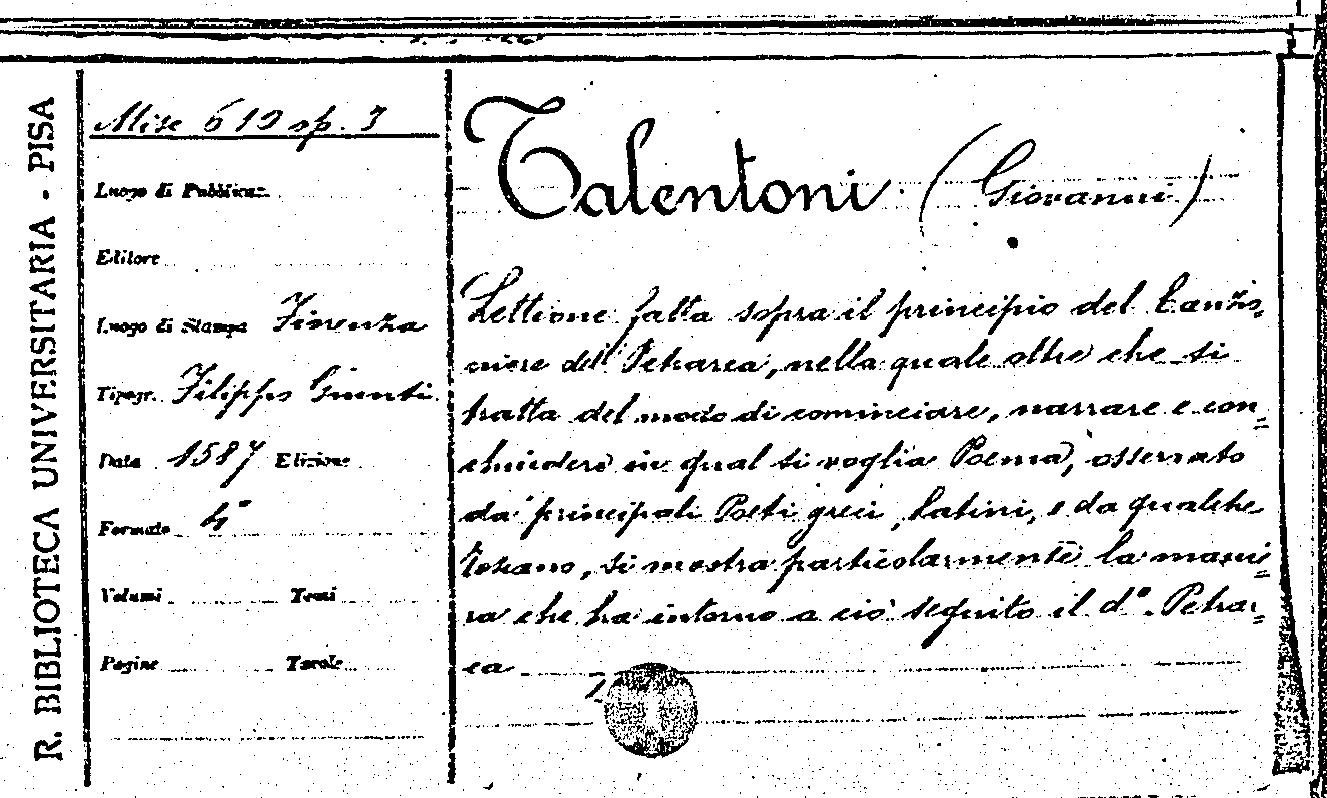 R. BIBLIOTECA UNIVERSITARIA - PISA
Misc 610 op. 3
Luogo di Pubblicaz.
Editore
Luogo di Stampa Firenza
Tipogr. Filippo Giunti
Data 1587 Edizione
Formato 4°
Volumi Tomi
Pagine Tavole
Talentoni (Giovanni)
Lettione fatta sopra il principio del Canzo-
niere del Petrarca, nella quale oltre che si
tratta del modo di cominciare, narrare e con=
chiudere in qual si voglia Poema, osservato
da' principali Poeti greci, latini, e da qualche
Toscano, si mostra particolarmente la manie=
ra che ha intorno a ciò seguito il d°. Petrar=
ca